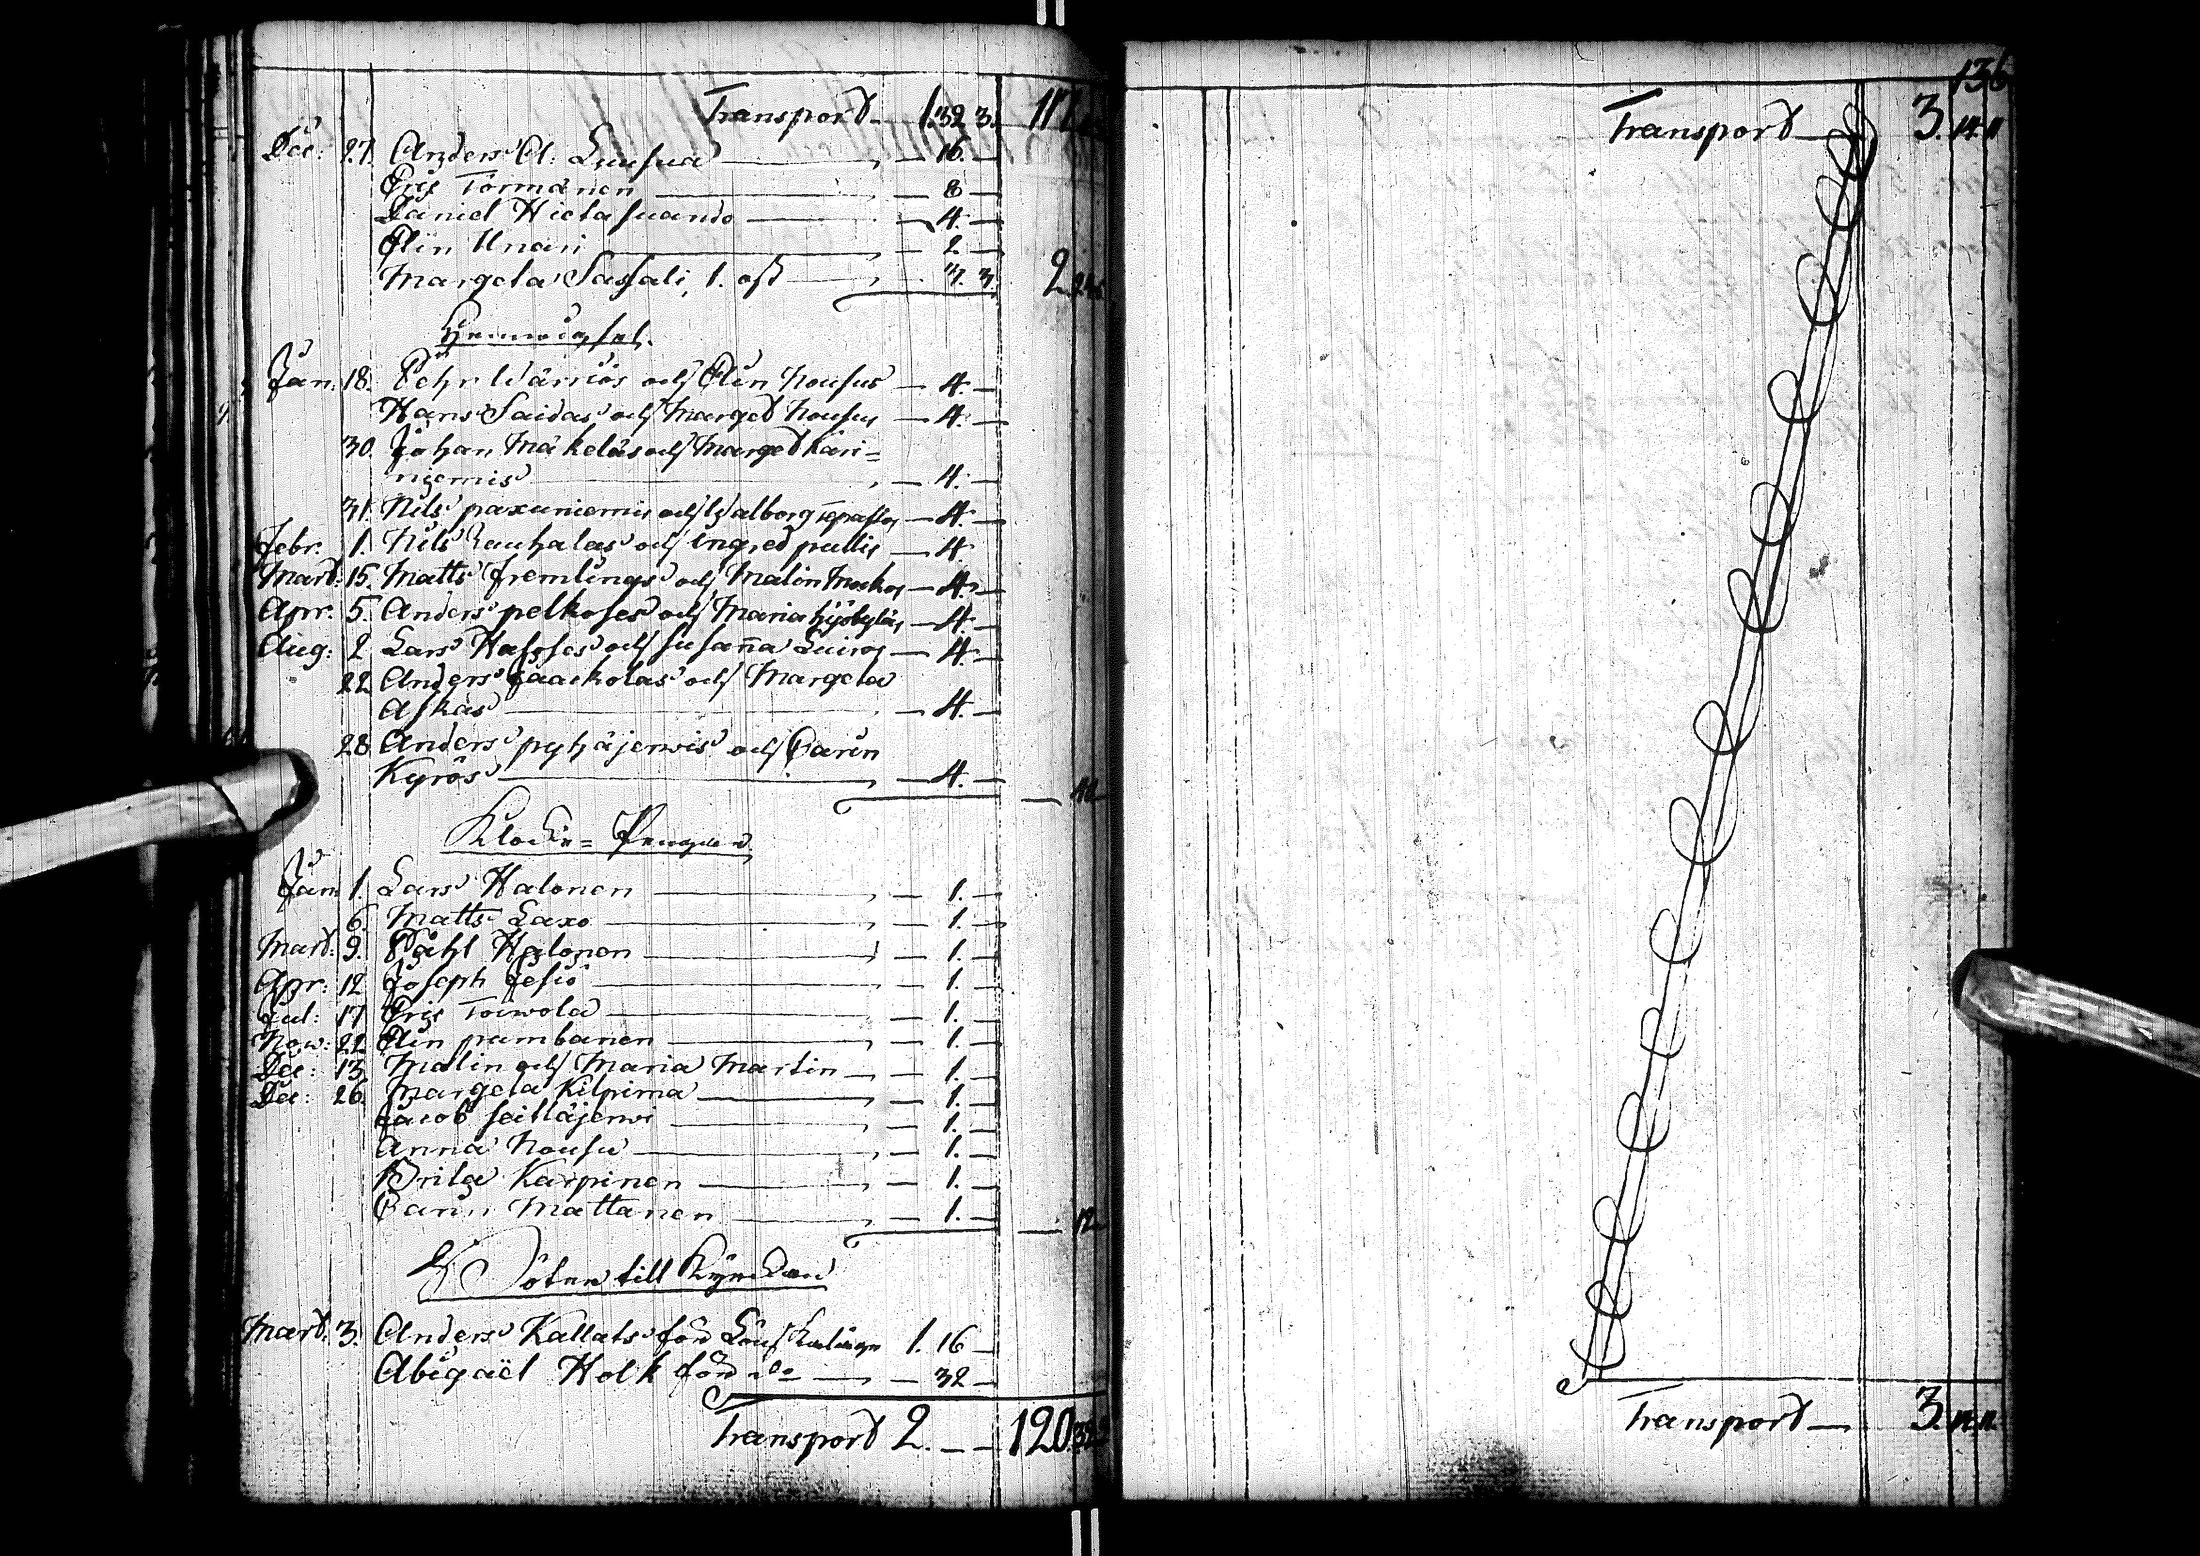 Transport 1.32 3. 117
Dec: 27. Anders A: Luusua — 16. —
Eric Tormänen — 8 —
Daniel Hietasuando — 4. —
Elin Unari — 2 —
Margeta Sassali, 1. ost 3. 2
Jan: 18. Pehr Wärriös och Elin Nousus — 4. —
Hans Saidas och Marget Nousus — 4. —
30. Johan Mäkeläs och Marget Kari=
niemis — 4. —
31. Nils paxuniemis och Walborg — 4. —
Febr. 1. Nils Rauhalas och Ingred pullis — 4
Mart: 15. Matts Fremlings och Malin — 4. —
Apr. 5. Anders pelkoses och Maria — 4. —
Aug: 2 Lars och Susanna Luiros — 4. —
22 Anders Jaackolas och Margeta
Askas — 4. —
28 Anders pyhäjerwis och Carin
Kyrös — 4. —
Klocke=Penger
Jan: 1. Lars Halonen — 1. —
6. Matts Laxo — 1. —
Mart: 9. Påhl Halonen — 1. —
Apr: 12 Joseph Jesiö — 1. —
Jul: 17 Eric Toiwola — 1. —
Now: 22 Elin pumbanen — 1. —
Dec: 13 Malin och Maria Martin — 1. —
Dec: 26. Margeta Kilpima — 1. —
Jacob seitäjerwi — 1. —
Anna Nousu — 1. —
Brita Karpinen — 1. —
Carin Mattanen — 1. — 12
Böter till Kyrckan
Mart: 3. Anders Kallats för 1. 16 —
Abigaël Holk för do — 32 —
Transport 2. — — 120.
136
Transport — 3. 14. 11
Transport — 3. 14. 11.